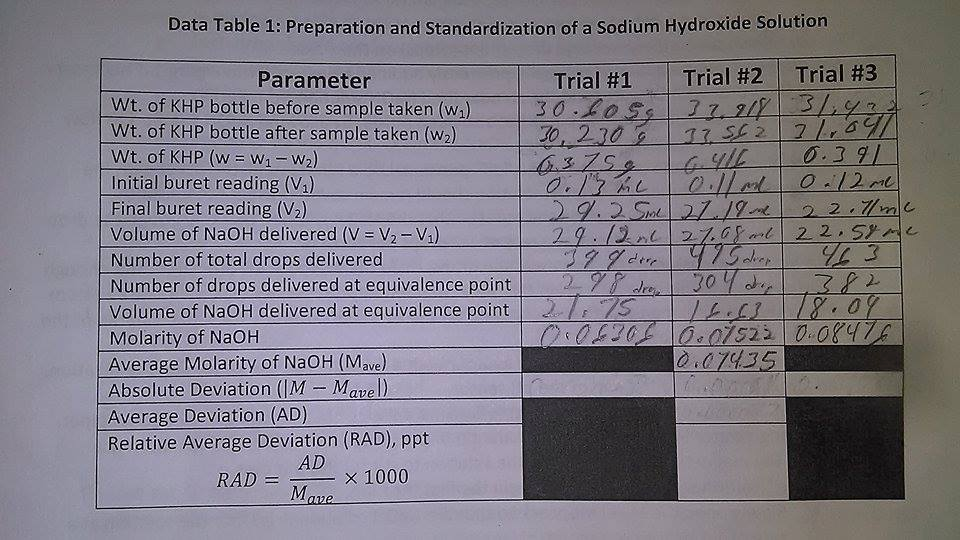 Data Table 1: Preparation and Standardization of a Sodium Hydroxide Solution
Parameter Trial #1 Trial #2 Trial #3
Wt. of KHP bottle before sample taken (w₁) 30.605g
Wt. of KHP bottle after sample taken (w₂) 30.230g 31.041
Wt. of KHP (w = w₁ – w₂) 0.375g 0.416 0.391
Initial buret reading (V₁) 0.13 mL 0.11 mL 0.12 mL
Final buret reading (V₂) 29.25mL 27.19 mL 22.71mL
Volume of NaOH delivered (V = V₂ – V₁) 29.12mL 27.08 mL 22.59 mL
Number of total drops delivered 399 drop 495 drop 463
Number of drops delivered at equivalence point 298 drop 304 drop 382
Volume of NaOH delivered at equivalence point 21.75 16.63 18.09
Molarity of NaOH 0.06306 0.07522 0.08476
Average Molarity of NaOH (Mave) 0.07435
Absolute Deviation (|M − Mave|)
Average Deviation (AD)
Relative Average Deviation (RAD), ppt
RAD = AD / Mave × 1000